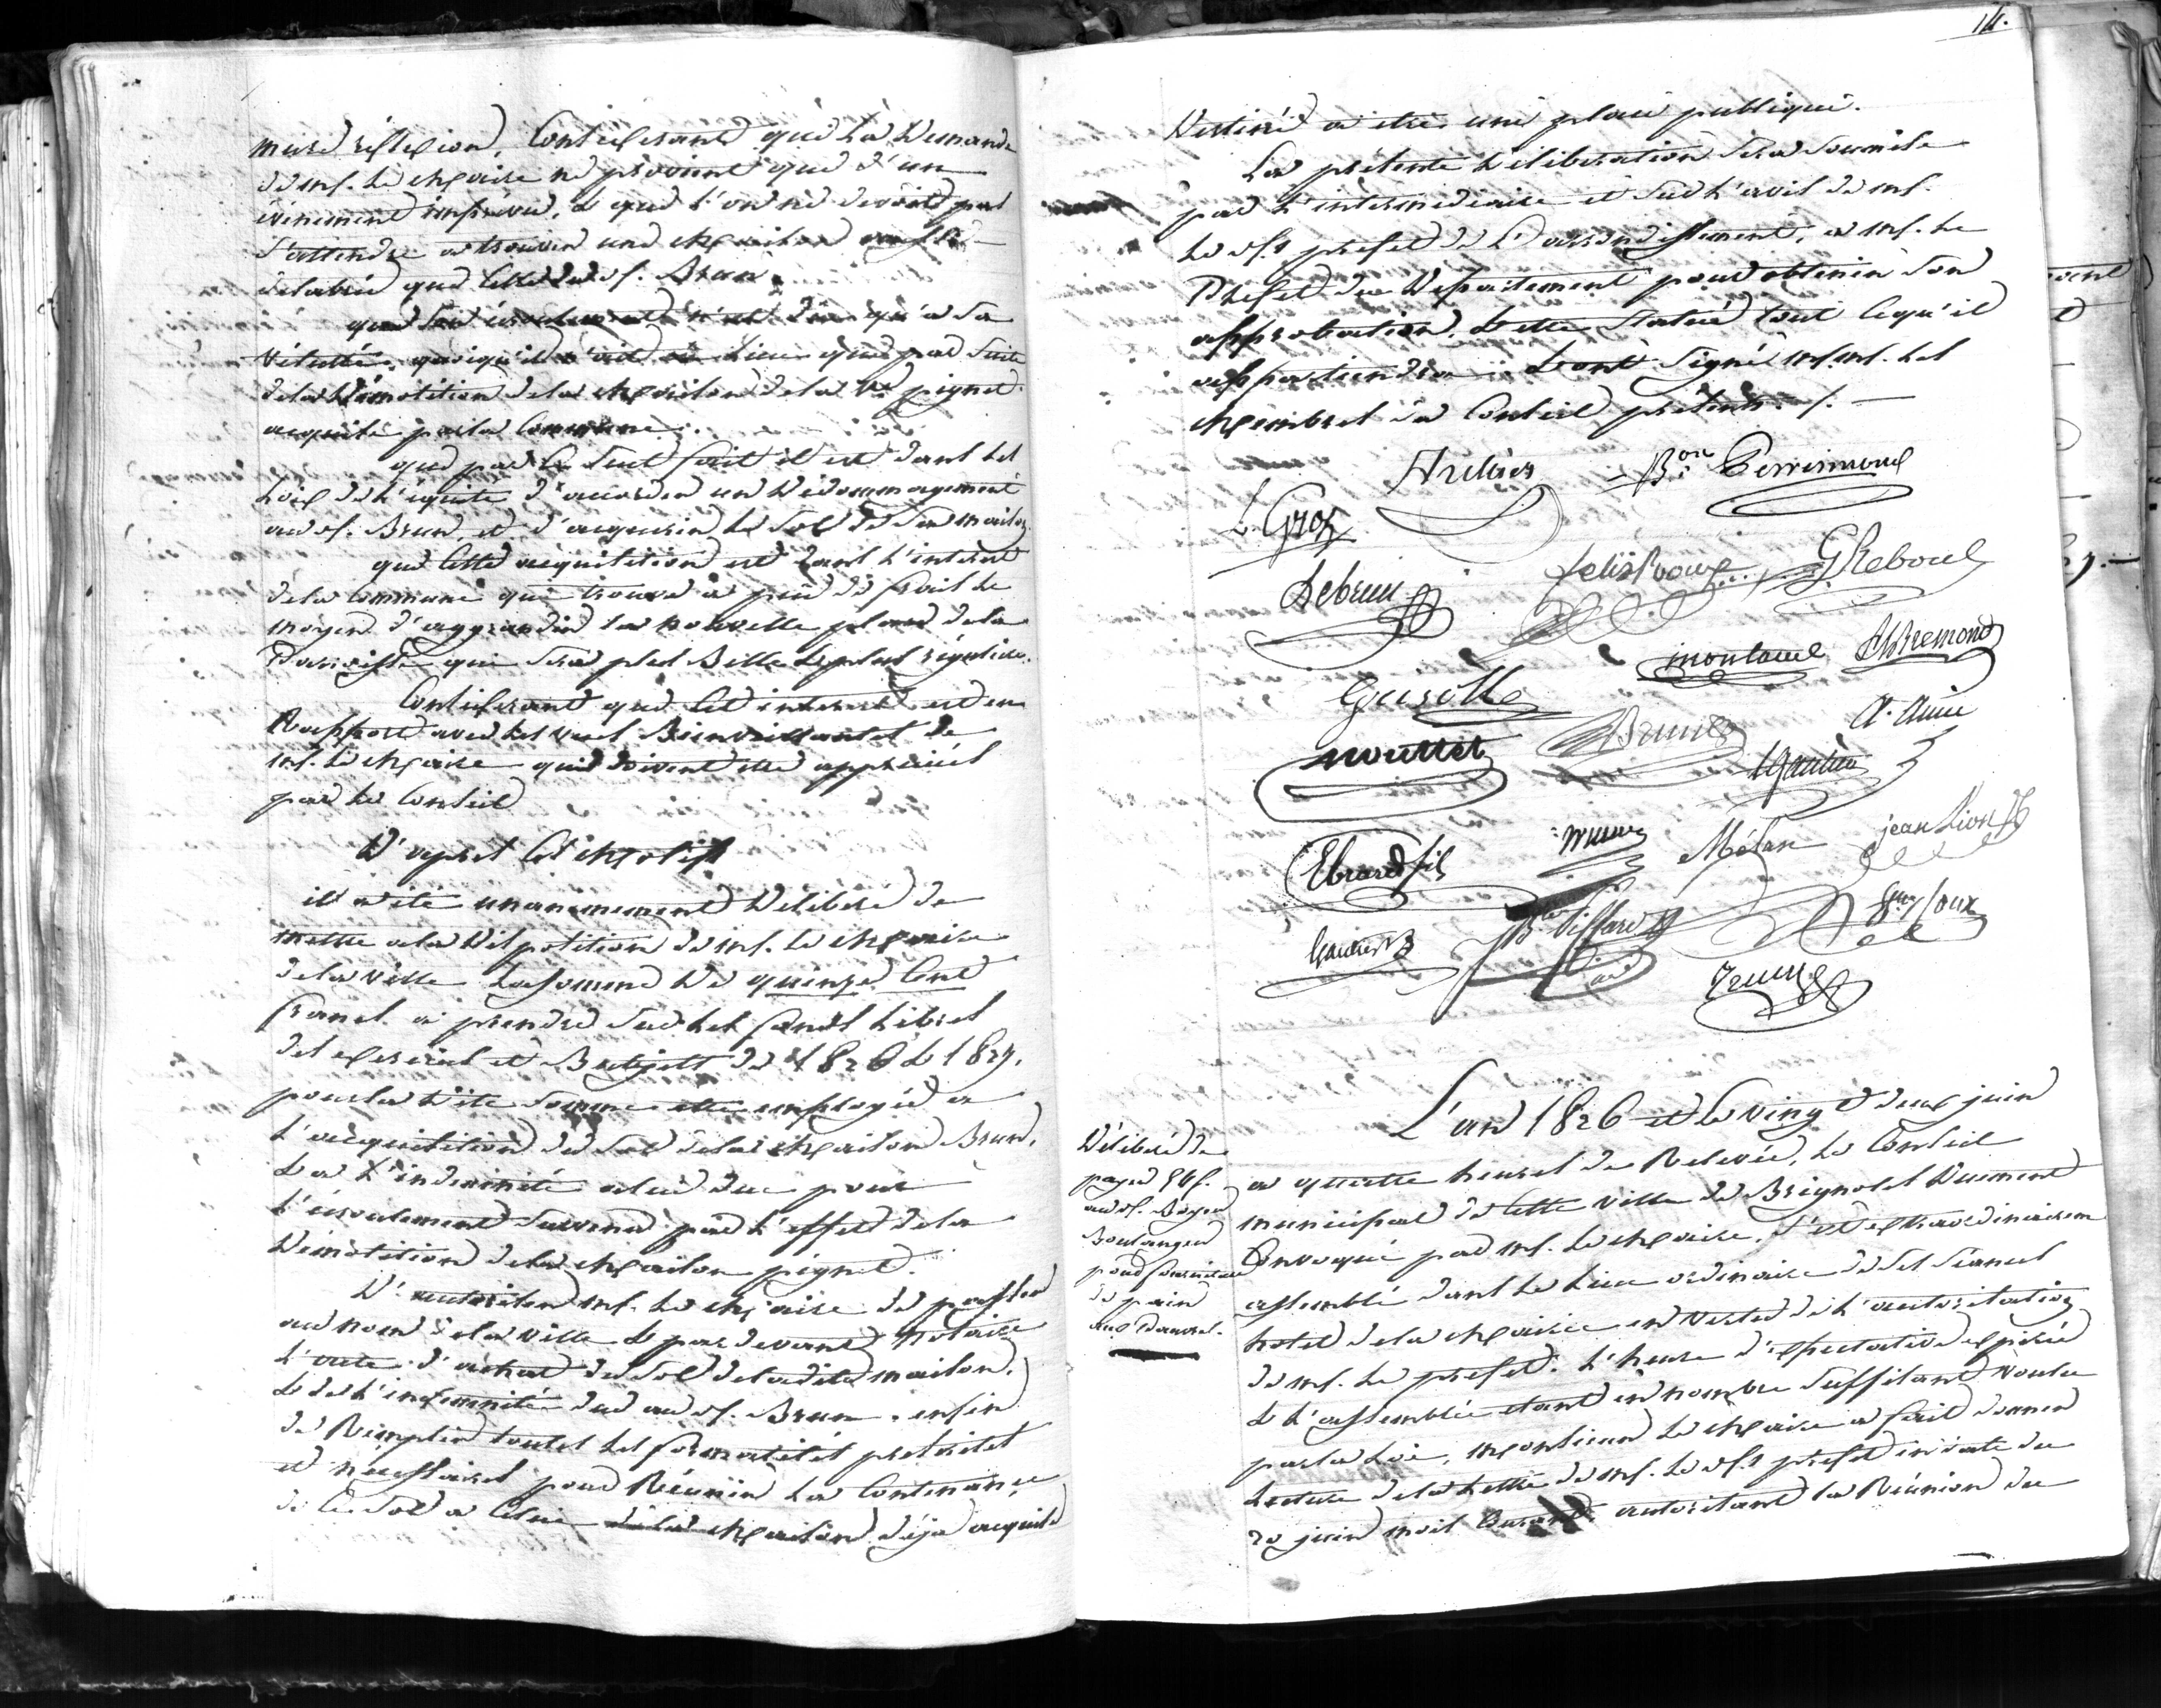 mure réflexion, Considerant que la Demande
de mr. le Maire ne provient que d'un
évènement imprévu, & que l'on ne devoit pas
s'attendre a trouver une Maison aussi
delabrée que celle du sr. Brun.
que son écroulement n'est dû qu'a sa
vétusté, quoiqu'il n'ait eu lieu que par suite
de la Démolition de la Maison de la Ve. pignet
acquise par la Commune.
que par ce seul fait il est dans les
Loix de l'équité d'accorder un Dédommagement
au sr. Brun, et d'acquerir le sol de sa maison
que cette acquisition est dans l'interet
de la Commune qui trouve à peu de frais le
moyen d'aggrandir la nouvelle place de la
Parroisse qui sera plus Belle & plus réguliere.
Considerant que cet interest est en
Rapport avec les vues Bienveillantes de
mr. le Maire qui doivent etre appréciées
par le Conseil
D'après ces Motifs
il a été unanimement Délibéré de
mettre a la Disposition de mr. le Maire
de la ville la somme de quinze Cent
francs a prendre sur les fonds libres
des exercices et Budjets de 1826 & 1827.
pour la dite somme etre employée a
l'acquisition du sol de la Maison Brun,
& a l'indemnité a lui due pour
l'écroulement survenu par l'effet de la
Démolition de la Maison pignet.
D'autoriser mr. le Maire de passer
au nom de la ville & par devant notaire
l'acte d'achat du sol de la dite maison,
& de l'indemnité due au sr. Brun. enfin
de Remplir toutes les formalités prescrites
et nécessaires pour Réunir la Contenance
de ce sol a celui de la Maison déja acquise
14.
Destiné a etre une place publique.
La présente Déliberation sera soumise
par l'intermédiaire et sur l'avis de mr.
le sr. prefet de l'arrondissement, a mr. le
Prefet du Département pour obtenir son
approbation, & etre statué tout ce qu'il
appartiendra. & ont signé mr.mr. les
Membres du Conseil présents. /. —
Bon. Perrimond
L. Gros
Lebrun
G Reboul
Montaud
Bremond
Guisolle
A. Aune
nouttet
Brunet
Gautier
Ebrard fils
Mélan
jean Lion
Gautier
Bte. Tissard
L'an 1826 et le vingt deux juin
Déliberé de
payer 84f.
au sr. Boyer
Boulanger
pour fourniture
de pain
aux Pauvres.
a quatre heures de Relevée, le Conseil
municipal de cette ville de Brignoles Duement
Convoqué par mr. le Maire, s'est extraordinairem
assemblé dans le lieu ordinaire de ses séances
hotel de la Mairie en vertu de l'autorisation
de mr. le prefet. l'heure d'expectative expirée
& l'assemblée etant en nombre suffisant voulu
par la Loi, Monsieur le Maire a fait donner
lecture de la Lettre de mr. le sr. prefet en date du
20 juin mois Courant autorisant la Réunion du